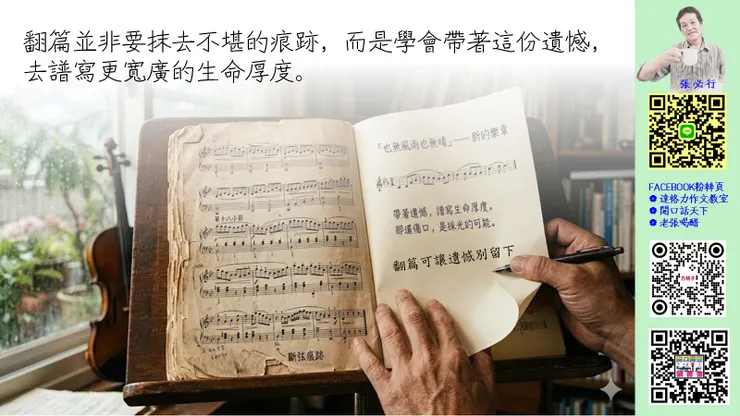 翻篇並非要抹去不堪的痕跡，而是學會帶著這份遺憾，
去譜寫更寬廣的生命厚度。
「也無風雨也無晴」—— 新的樂章
第十八小節
帶著遺憾，譜寫生命厚度。
那道傷口，是採光的可能。
翻篇可讓遺憾別留下
斷弦痕跡
張必行
FACEBOOK粉絲頁
達格力作文教室
開口話天下
老張喝醋